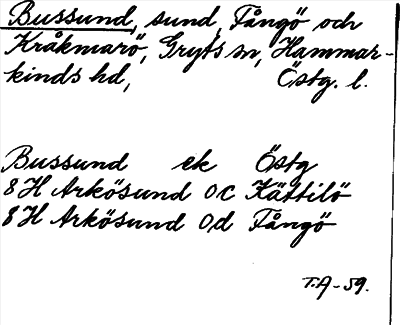 Bussund, sund, Fångö och
Kråkmarö, Gryts sn, Hammar-
kinds hd, Östg. l.
Bussund ek Östg
8H Arkösund 0c Kättilö
8H Arkösund 0d Fångö
T.A-59.